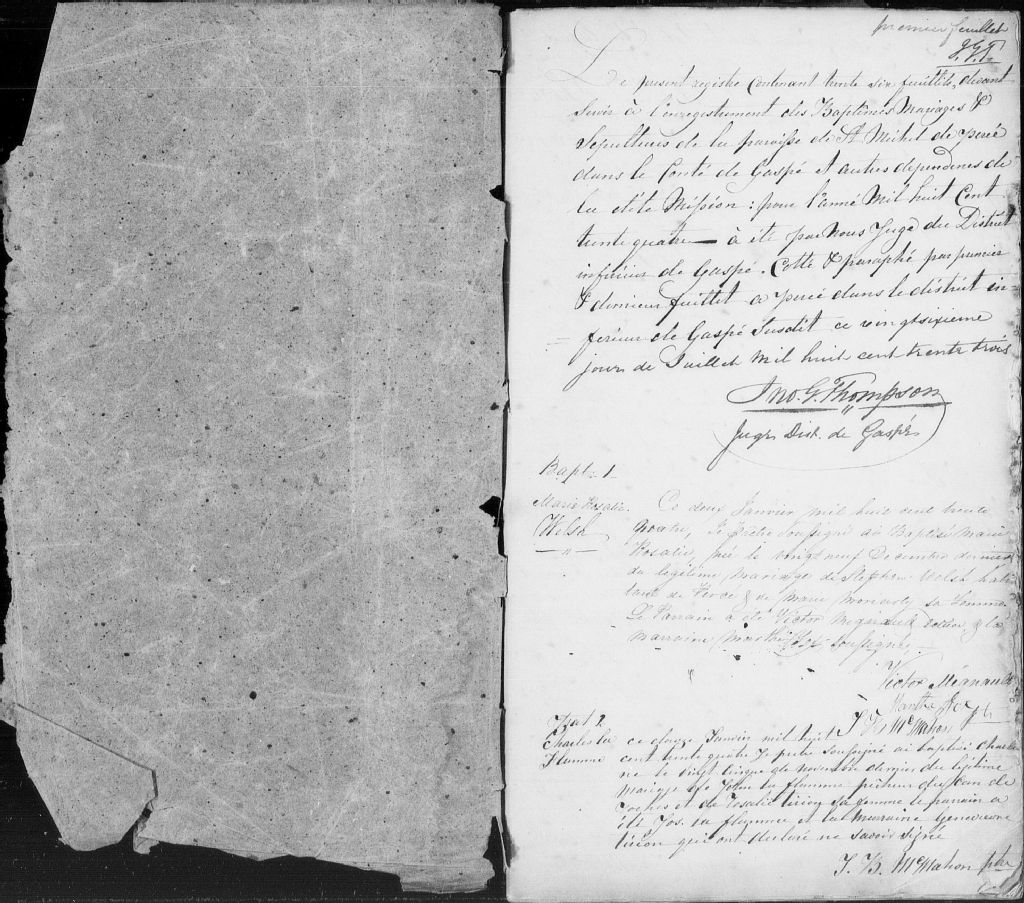 premier feuillet
J.G.T.
Le present registre Contenant trente six feuillets, devant
servir à l'enregistrement des Baptêmes Mariages &
Sepultures de la paroisse de St Michel de percé
dans le Conté de Gaspé et autres dependences de
la dite Mission : pour l'anné Mil huit Cent
trente quatre — à été par Nous Juge du District
inférieur de Gaspé. Cotté & paraphé par premier
& dernier feuillet a percé dans le district in-
ferieur de Gaspé Susdit ce vingtsixieme
jours de Juillet Mil huit cent trente trois
Jno. G. Thompson
Juge Dist. de Gaspé
Bapt. 1
Marie Rosalie. Ce deux Janvier mil huit cent trente
Welsh quatre, Je Prêtre Soussigné ai Baptisé Marie
Rosalie, née le vingt neuf Decembre dernier
du légitime Mariage de Stephen Welsh habi-
tant de Percé & de Marie sa femme
Le Parrain a été Victor & la
marraine Marthe soussignés.
Victor
Marthe
J. B. McMahon ptr
Bat 2
Charles la ce douze Janvier mil huit
Flamme cent trente quatre Je prêtre soussigné ai baptisé Charles
né le vingt cinque de novembre dernier du légitime
Mariage de John la flamme pêcheur du
et de Rosalie sa femme le parrain a
été Jos. la flamme et la Marraine Genevieve
qui ont déclaré ne savoir signé
J. B. McMahon ptr